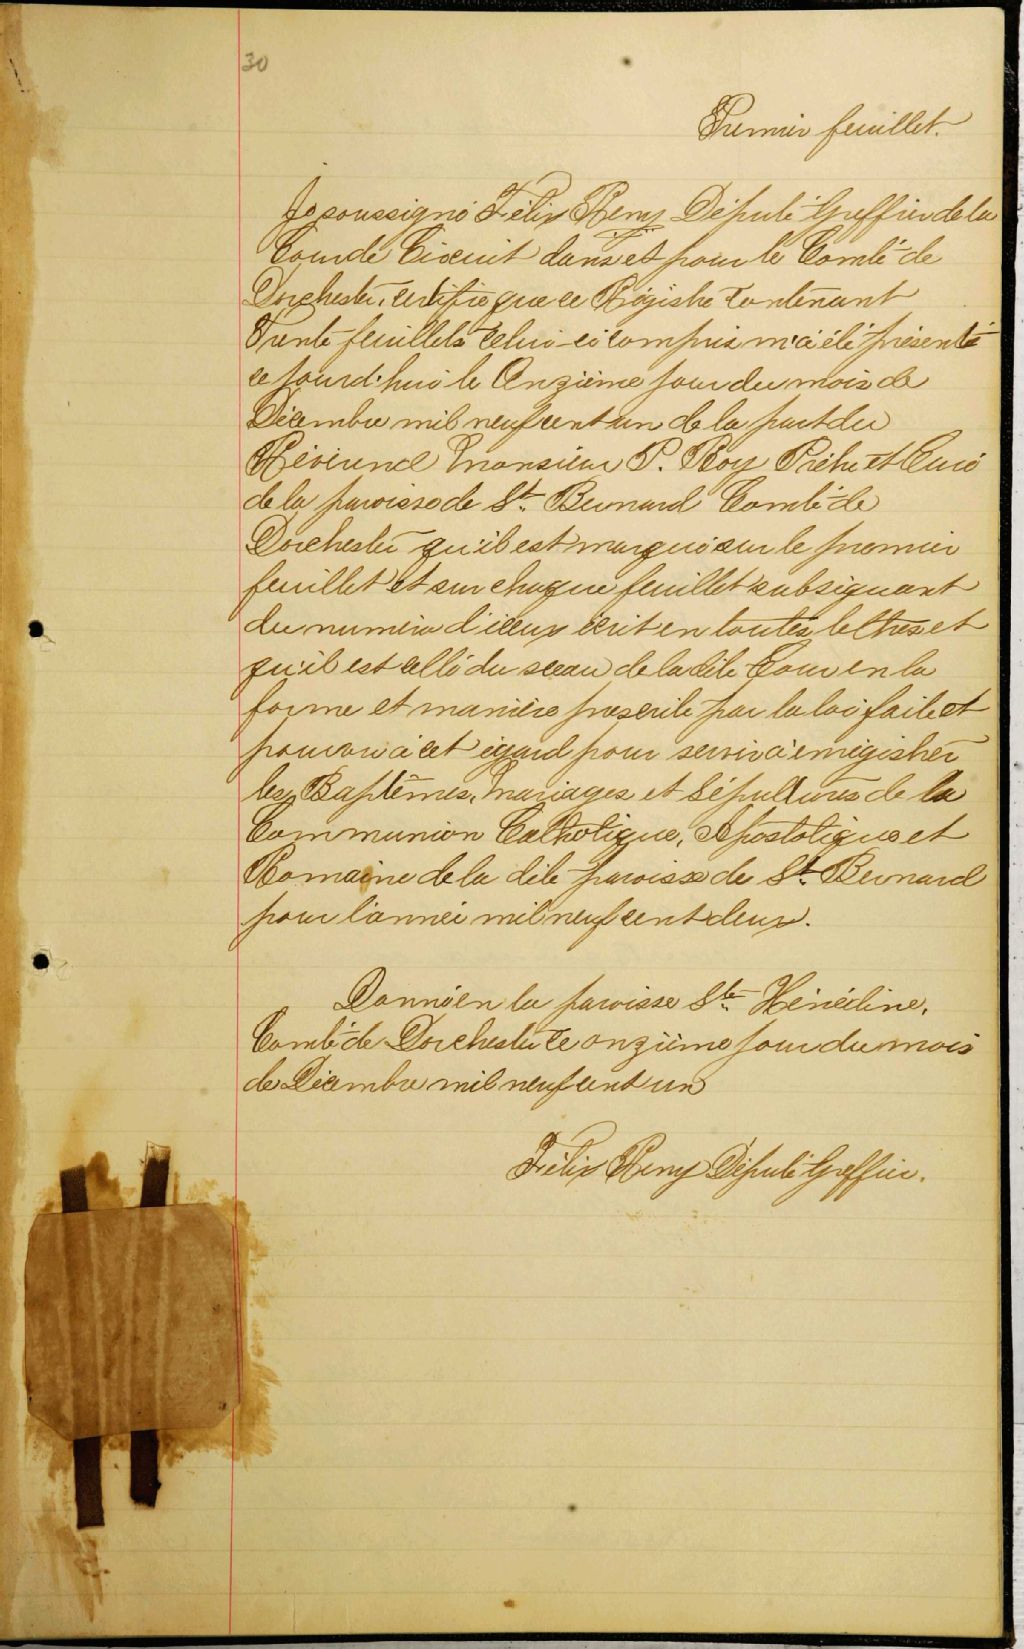 30
Premier feuillet.
Je soussigné Félix Remy Député Greffier de la
Cour de Circuit dans et pour le Comté de
Dorchester, certifie que ce Régistre contenant
Trente feuillets celui-ci compris m'a été présenté
ce jourd'hui le Onzième jour du mois de
Décembre mil neuf cent un de la part du
Révérend Monsieur P. Roy Prêtre et Curé
de la paroisse de St. Bernard Comté de
Dorchester qu'il est marqué sur le premier
feuillet et sur chaque feuillet subséquant
du numéro d'iceux écrit en toutes lettres et
qu'il est cellé du sceau de la dite Cour en la
forme et manière prescrite par la loi faite et
pourvu à cet égard pour servir à enrégistrer
les Baptêmes, Mariages et Sépultures de la
Communion Catholique, Apostolique et
Romaine de la dite paroisse de St. Bernard
pour l'année mil neuf cent deux.
Donné en la paroisse Ste. Hénédine,
Comté de Dorchester ce onzième jour du mois
de Décembre mil neuf cent un
Félix Remy Député Greffier.